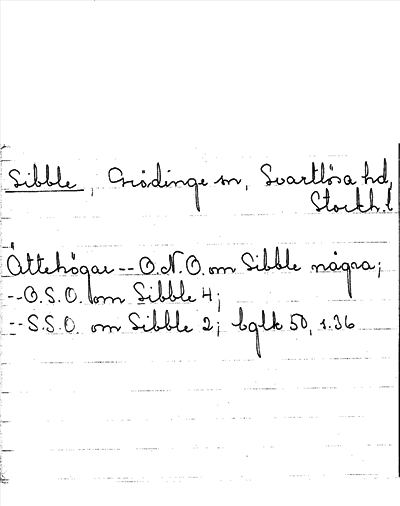 Sibble, Grödinge sn, Svartlösa hd,
Stockh.l
Ättehögar -- O.N.O. om Sibble några;
-- O.S.O. om Sibble 4;
-- S.S.O. om Sibble 2; bglk 50, s.36